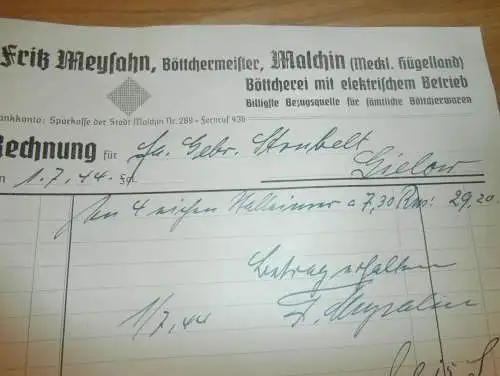 Fritz Meysahn, Böttchermeister, Malchin (Meckl. Hügelland)
Böttcherei mit elektrischem Betrieb
Billigste Bezugsquelle für sämtliche Böttcherwaren
ankkonto: Sparkasse der Stadt Malchin Nr. 289 - Fernruf 436
Rechnung für Fa. Gebr. Strubelt
Gielow
n 1.7.44
An 4 eichen a 7,30 Rm: 29,20
Betrag erhalten
1/7,44 F. Meysahn